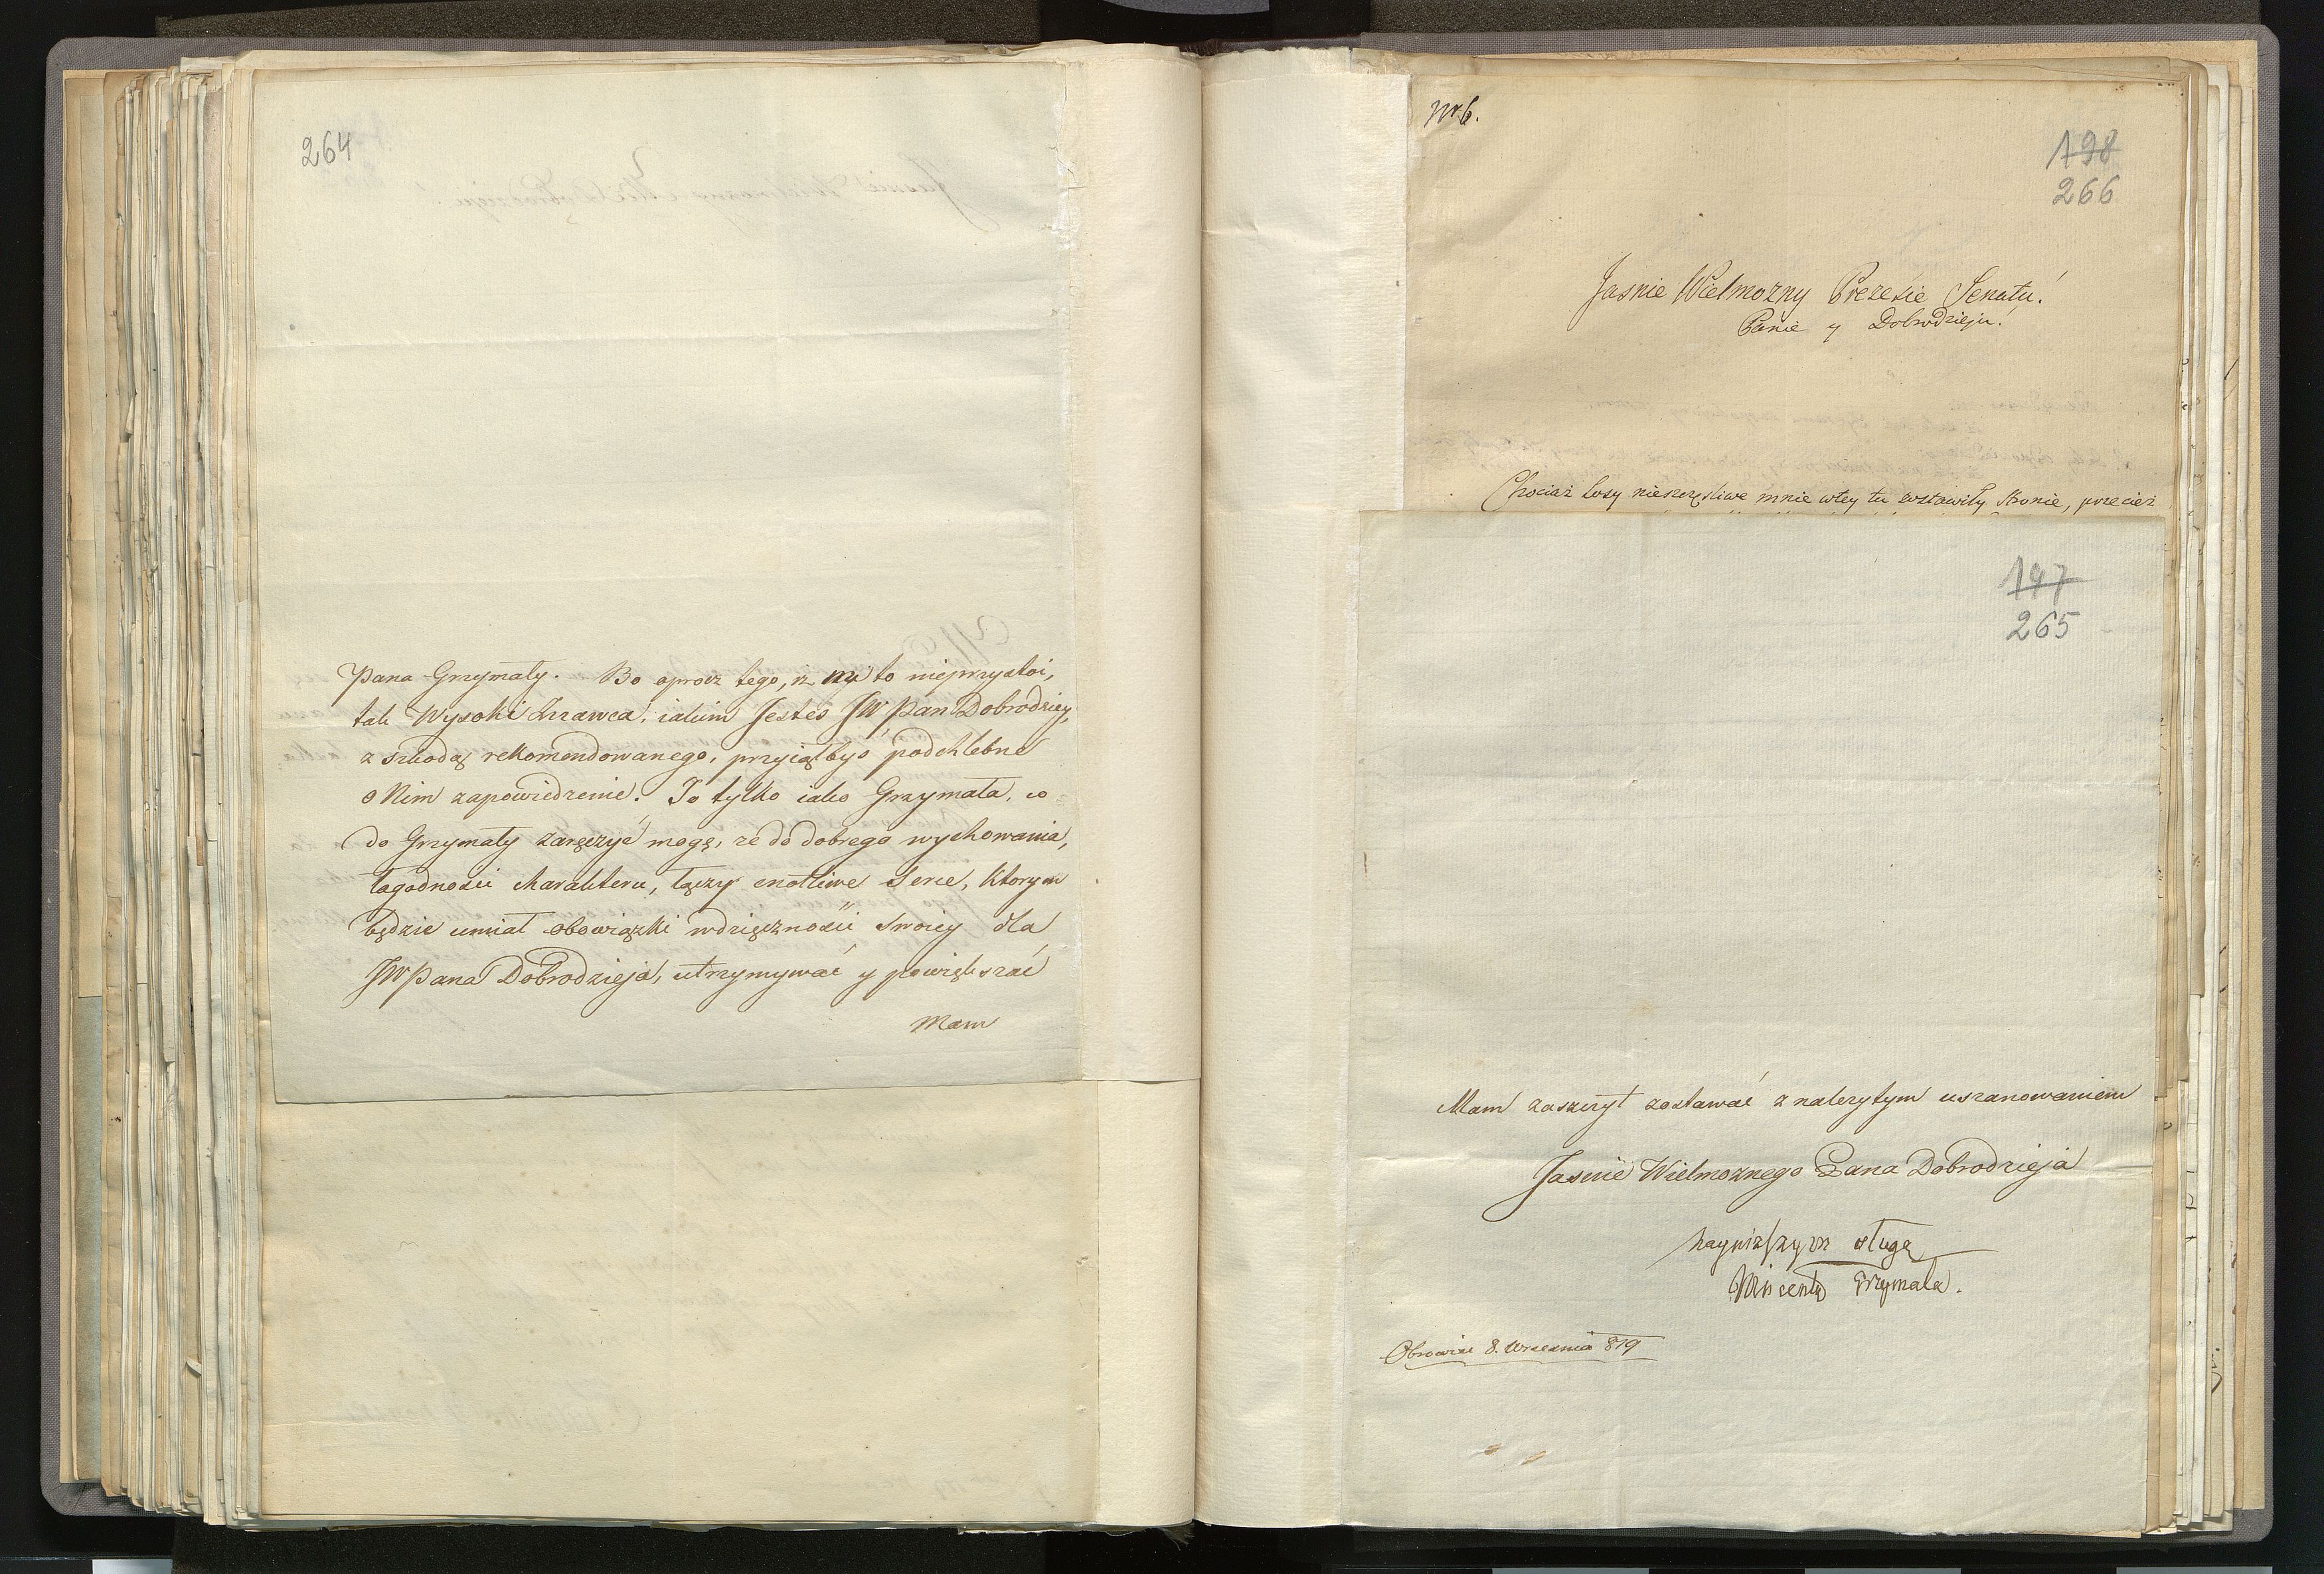 264
Pana Grzymały. Bo oprocz tego, iż to nieprzystoi,
tak Wysoki Znawca, iakim Jesteś JW Pan Dobrodziey,
z szkodą rekomendowanego, przyiąłbyś podchlebne
o Nim zapowiedzenie. To tylko iako Grzymała, co
do Grzymały zaręczyć mogę, że do dobrego wychowania,
łagodności charakteru, łączy cnotliwe Serce, Ktorym
będzie umiał obowiązki wdzięczności Swoiey dla
JWPana Dobrodzieja, utrzymywać y powiększać
Mam
Nr 6.
198
266
Jasnie Wielmozny Prezesie Senatu!
Panie y Dobrodzieju!
Chociaż losy nieszczęsliwe mnie wtey tu zostawiły stronie, przecież
197
265
Mam zaszczyt zostawać z należytym uszanowaniem
Jasnie Wielmoznego Pana Dobrodzieja
nayniższym sługą
Wincenty Grzymała.
8. Wrzesnia 819